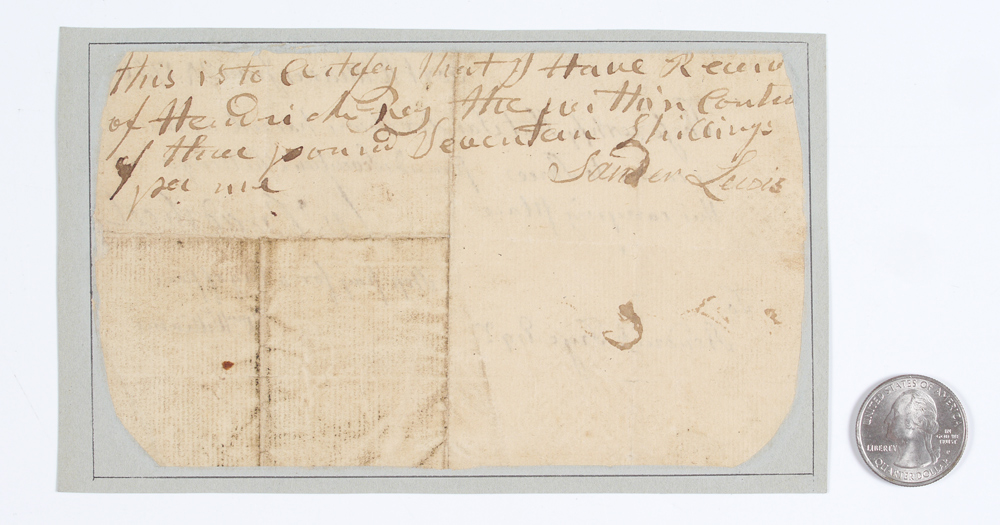 this is to Certefey that I Have Receiv
of Hendrick Rey the within Conten
of thee pound Seventeen Shillings
per me Sander Lewis
UNITED STATES OF AMERICA
LIBERTY
IN GOD WE TRUST
QUARTER DOLLAR